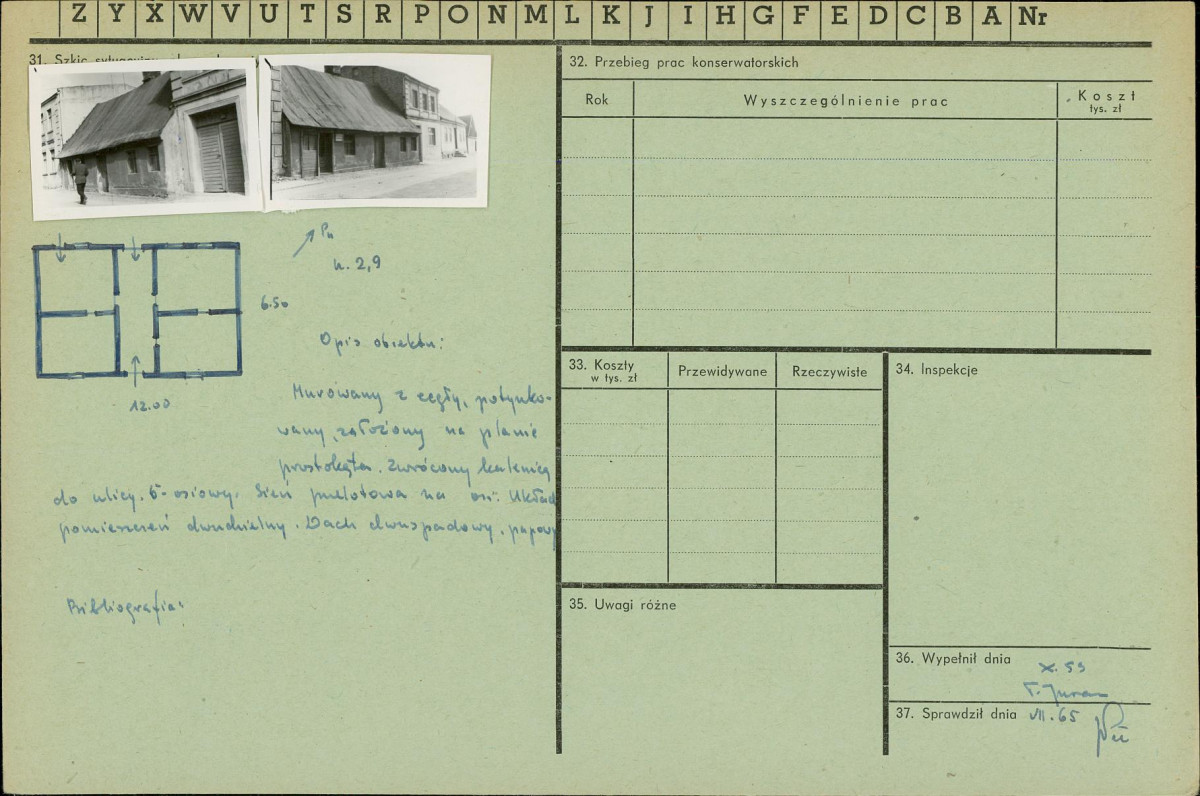 Z Y X W V U T S R P O N M L K J I H G F E D C B A Nr
31. Szkic sytuacyjny
Pn
h. 2,9
6.50
12.00
Opis obiektu:
Murowany z cegły, potynko-
wany, założony na planie
prostokąta. Zwrócony kalenicą
do ulicy. 5-osiowy. Sień przelotowa na osi. Układ
pomieszczeń dwudzielny. Dach dwuspadowy, papowy
Bibliografia:
32. Przebieg prac konserwatorskich
Rok
Wyszczególnienie prac
Koszt
tys. zł
33. Koszty
w tys. zł
Przewidywane
Rzeczywiste
34. Inspekcje
35. Uwagi różne
36. Wypełnił dnia X. 59
37. Sprawdził dnia VII. 65